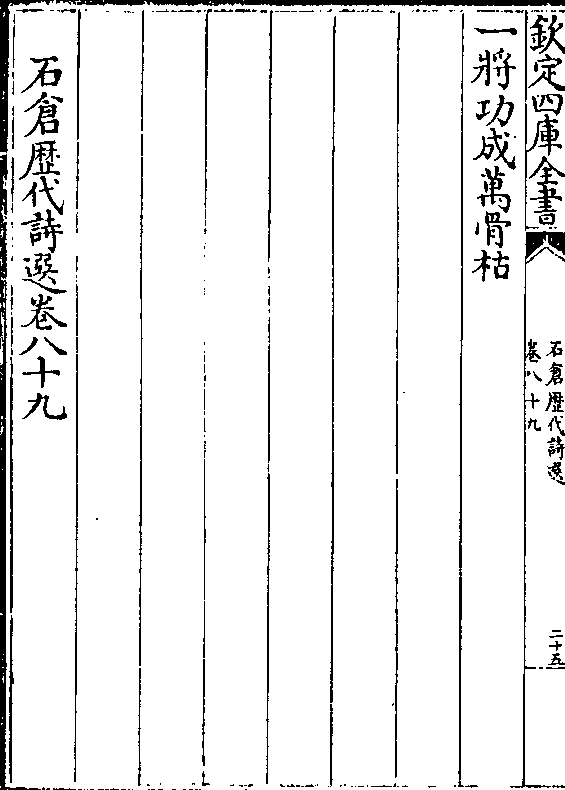 欽定四庫全書
石倉歷代詩選
卷八十九
二十五
一將功成萬骨枯
石倉歷代詩選卷八十九